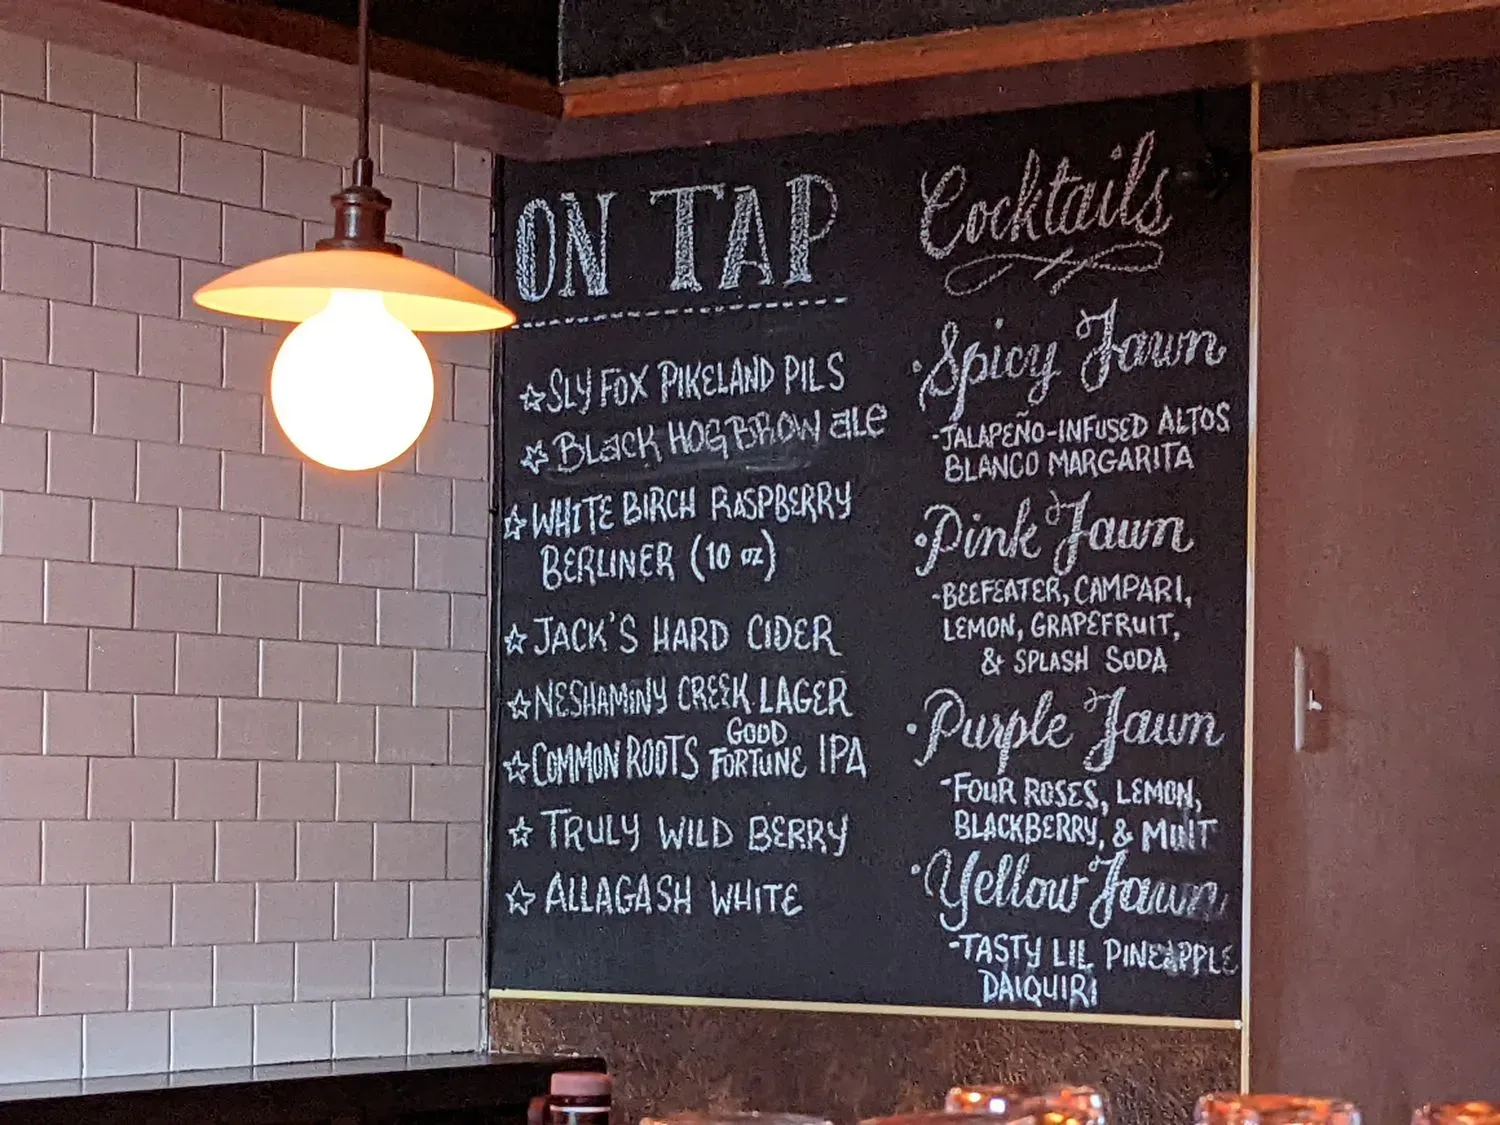 ON TAP
SLY FOX PIKELAND PILS
BLACK HOG BROW ALE
WHITE BIRCH RASPBERRY
BERLINER (10 oz)
JACK'S HARD CIDER
NESHAMINY CREEK LAGER
COMMON ROOTS GOOD FORTUNE IPA
TRULY WILD BERRY
ALLAGASH WHITE
Cocktails
· Spicy Jawn
- JALAPEÑO-INFUSED ALTOS
BLANCO MARGARITA
· Pink Jawn
- BEEFEATER, CAMPARI,
LEMON, GRAPEFRUIT,
& SPLASH SODA
· Purple Jawn
- FOUR ROSES, LEMON,
BLACKBERRY, & MINT
· Yellow Jawn
- TASTY LIL PINEAPPLE
DAIQUIRI